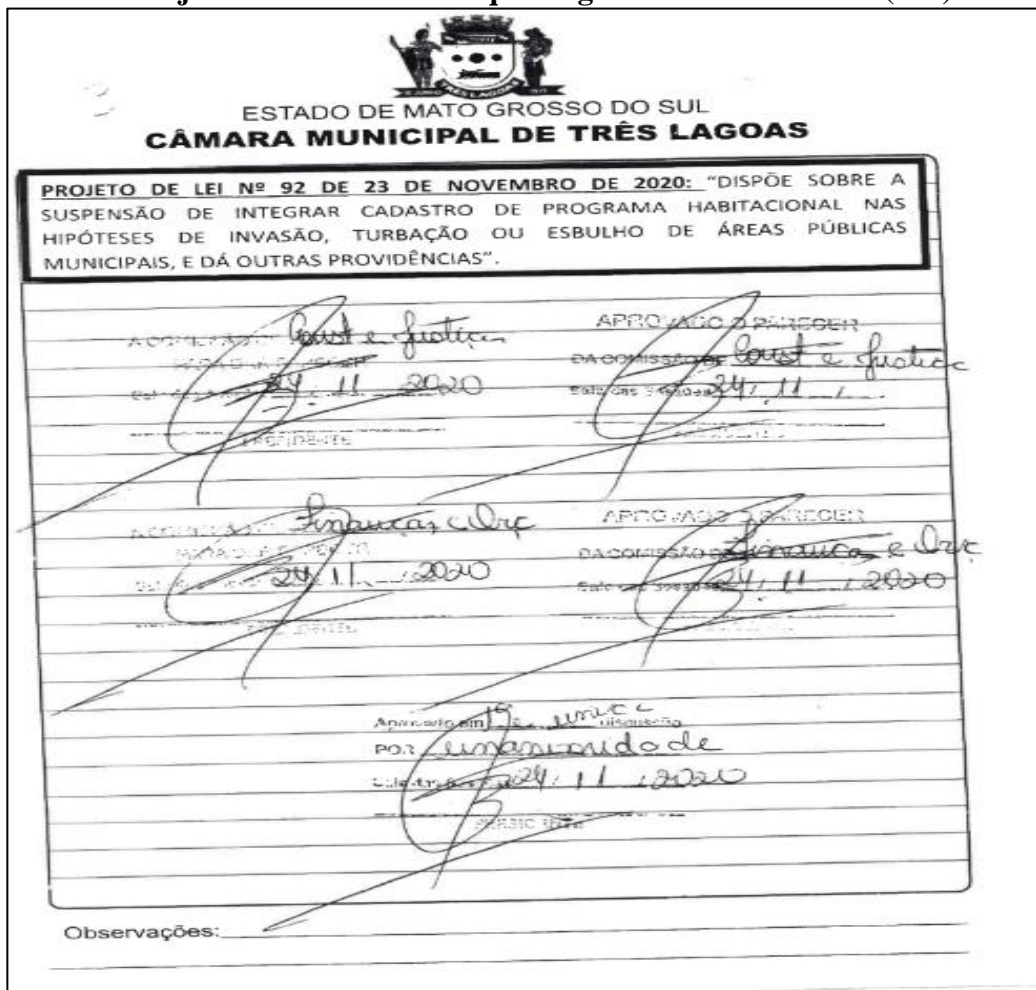 ESTADO DE MATO GROSSO DO SUL
CÂMARA MUNICIPAL DE TRÊS LAGOAS
PROJETO DE LEI Nº 92 DE 23 DE NOVEMBRO DE 2020: "DISPÕE SOBRE A
SUSPENSÃO DE INTEGRAR CADASTRO DE PROGRAMA HABITACIONAL NAS
HIPÓTESES DE INVASÃO, TURBAÇÃO OU ESBULHO DE ÁREAS PÚBLICAS
MUNICIPAIS, E DÁ OUTRAS PROVIDÊNCIAS".
Const e Justiça
24 / 11 2020
PRESIDENTE
APROVADO O PARECER
DA COMISSÃO DE Const e Justiça
Sala das Sessões 24 / 11 /
Finanças e Orç
24 / 11 / 2020
APROVADO O PARECER
DA COMISSÃO DE Finanças e Orç
Sala das Sessões 24 / 11 / 2020
Aprovado em 1ª e única discussão
POR unanimidade
24 / 11 / 2020
PRESIDENTE
Observações: